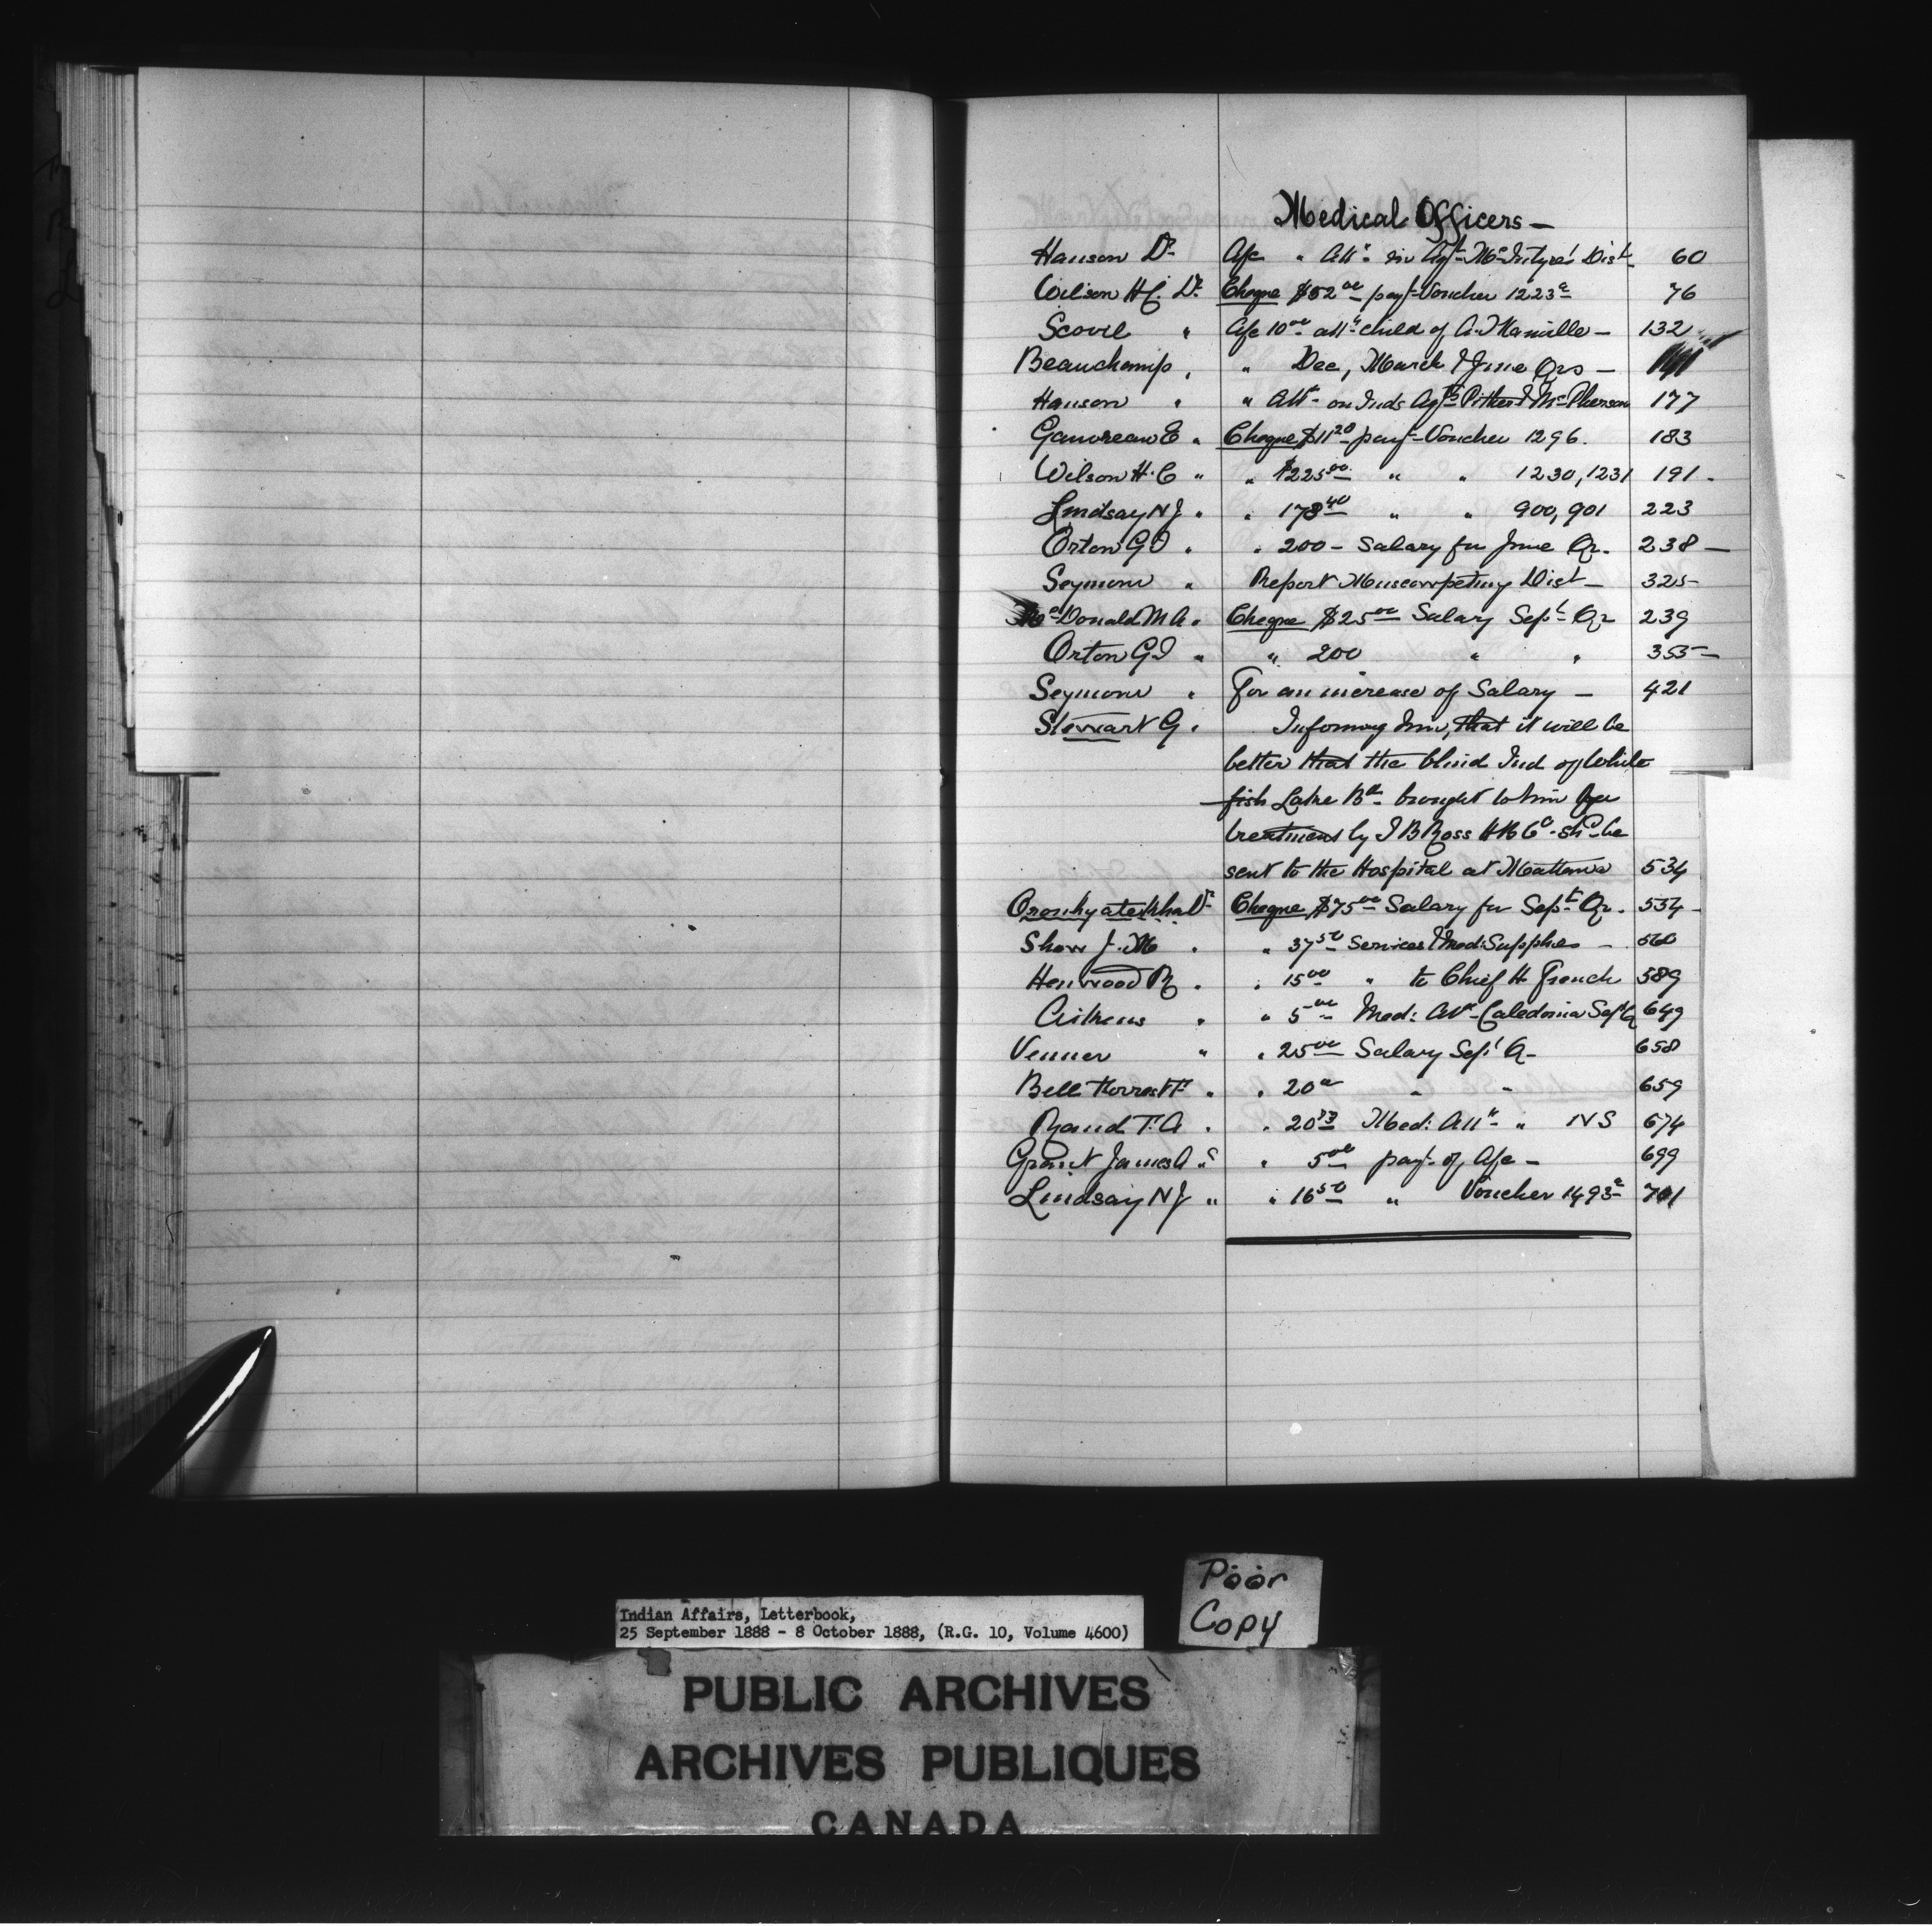 Medical Officers —
Hanson Dr a/c " Attce in Agt McIntyre's Dist 60
Wilson H.C. Dr Cheque $52 00 payt Voucher 1223a 76
Scovil " a/c 10 00 attce child of — 132
Beauchamp " " Dec, March & June Qrs — 141
Hanson " " Attce on Inds Agts Pither & McPherson 177
Gauvreau E " Cheque $11 20 payt Voucher 1296. 183
Wilson H.C " " $225 00 " " 1230, 1231 191 -
Lindsay N J " " 178 40 " " 900, 901 223
Orton G T " " 200 - Salary for June Qr. 238 —
Seymour " Report Muscowpetung Dist — 325
McDonald M A " Cheque $25 00 Salary Sept Qr 239
Orton G T " " 200 " " 355 —
Seymour " For an increase of Salary — 421
Stewart G. Informing him, that it will be
better that the blind Ind of White
fish Lake Bd brought to him for
treatment by J B Ross H B Co. shd be
sent to the Hospital at Mattawa 534
Oronhyatekha Dr Cheque $75 00 Salary for Sept Qr. 554 -
Shaw J. M " " 37 50 Services & Med: Supplies — 560
Henwood R " " 15 00 " to Chief H French 589
Aitkens " " 5 00 Med: Att - Caledonia Sept Q 649
Venner " " 25 00 Salary Sept Q - 658
Bell Forrest F. " " 20 00 " " 659
Rand T. A " " 20 Med: Attce " NS 674
Grant James A Sr " 5 00 payt of a/c — 699
Lindsay N J " " 16 50 " Voucher 1493a 701
Poor
Copy
Indian Affairs, Letterbook,
25 September 1888 - 8 October 1888, (R.G. 10, Volume 4600)
PUBLIC ARCHIVES
ARCHIVES PUBLIQUES
CANADA